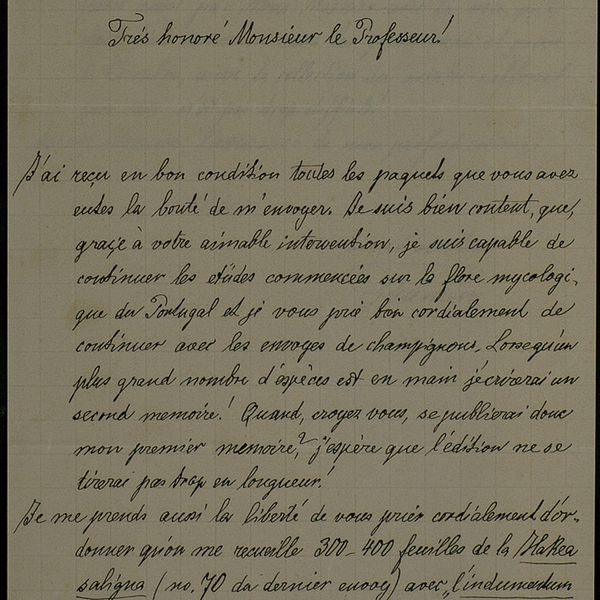 Trés honoré Monsieur le Professeur!
J'ai reçu en bon condition toutes les paquets que vous avez
eutes la bonté de m'envoyer. Je suis bien content, que,
graçe à votre aimable intervention, je suis capable de
continuer les etüdes commencées sur la flore mycologi-
que du Portugal et je vous prie bien cordialement de
continuer avec les envoyes de champignons. Lorsequ'un
plus grand nombre d'espèces est en main j'écrirerai un
second memoire! Quand, croyez vous, se publierai donc
mon premier memoire,? j'espère que l'édition ne se
tirerai pas trop en longueur!
Je me prends aussi la liberté de vous prier cordialement d'or-
donner qu'on me recueille 300–400 feuilles de la Hakea
saligna (no. 70 du dernier envoy) avec „l'indumentum